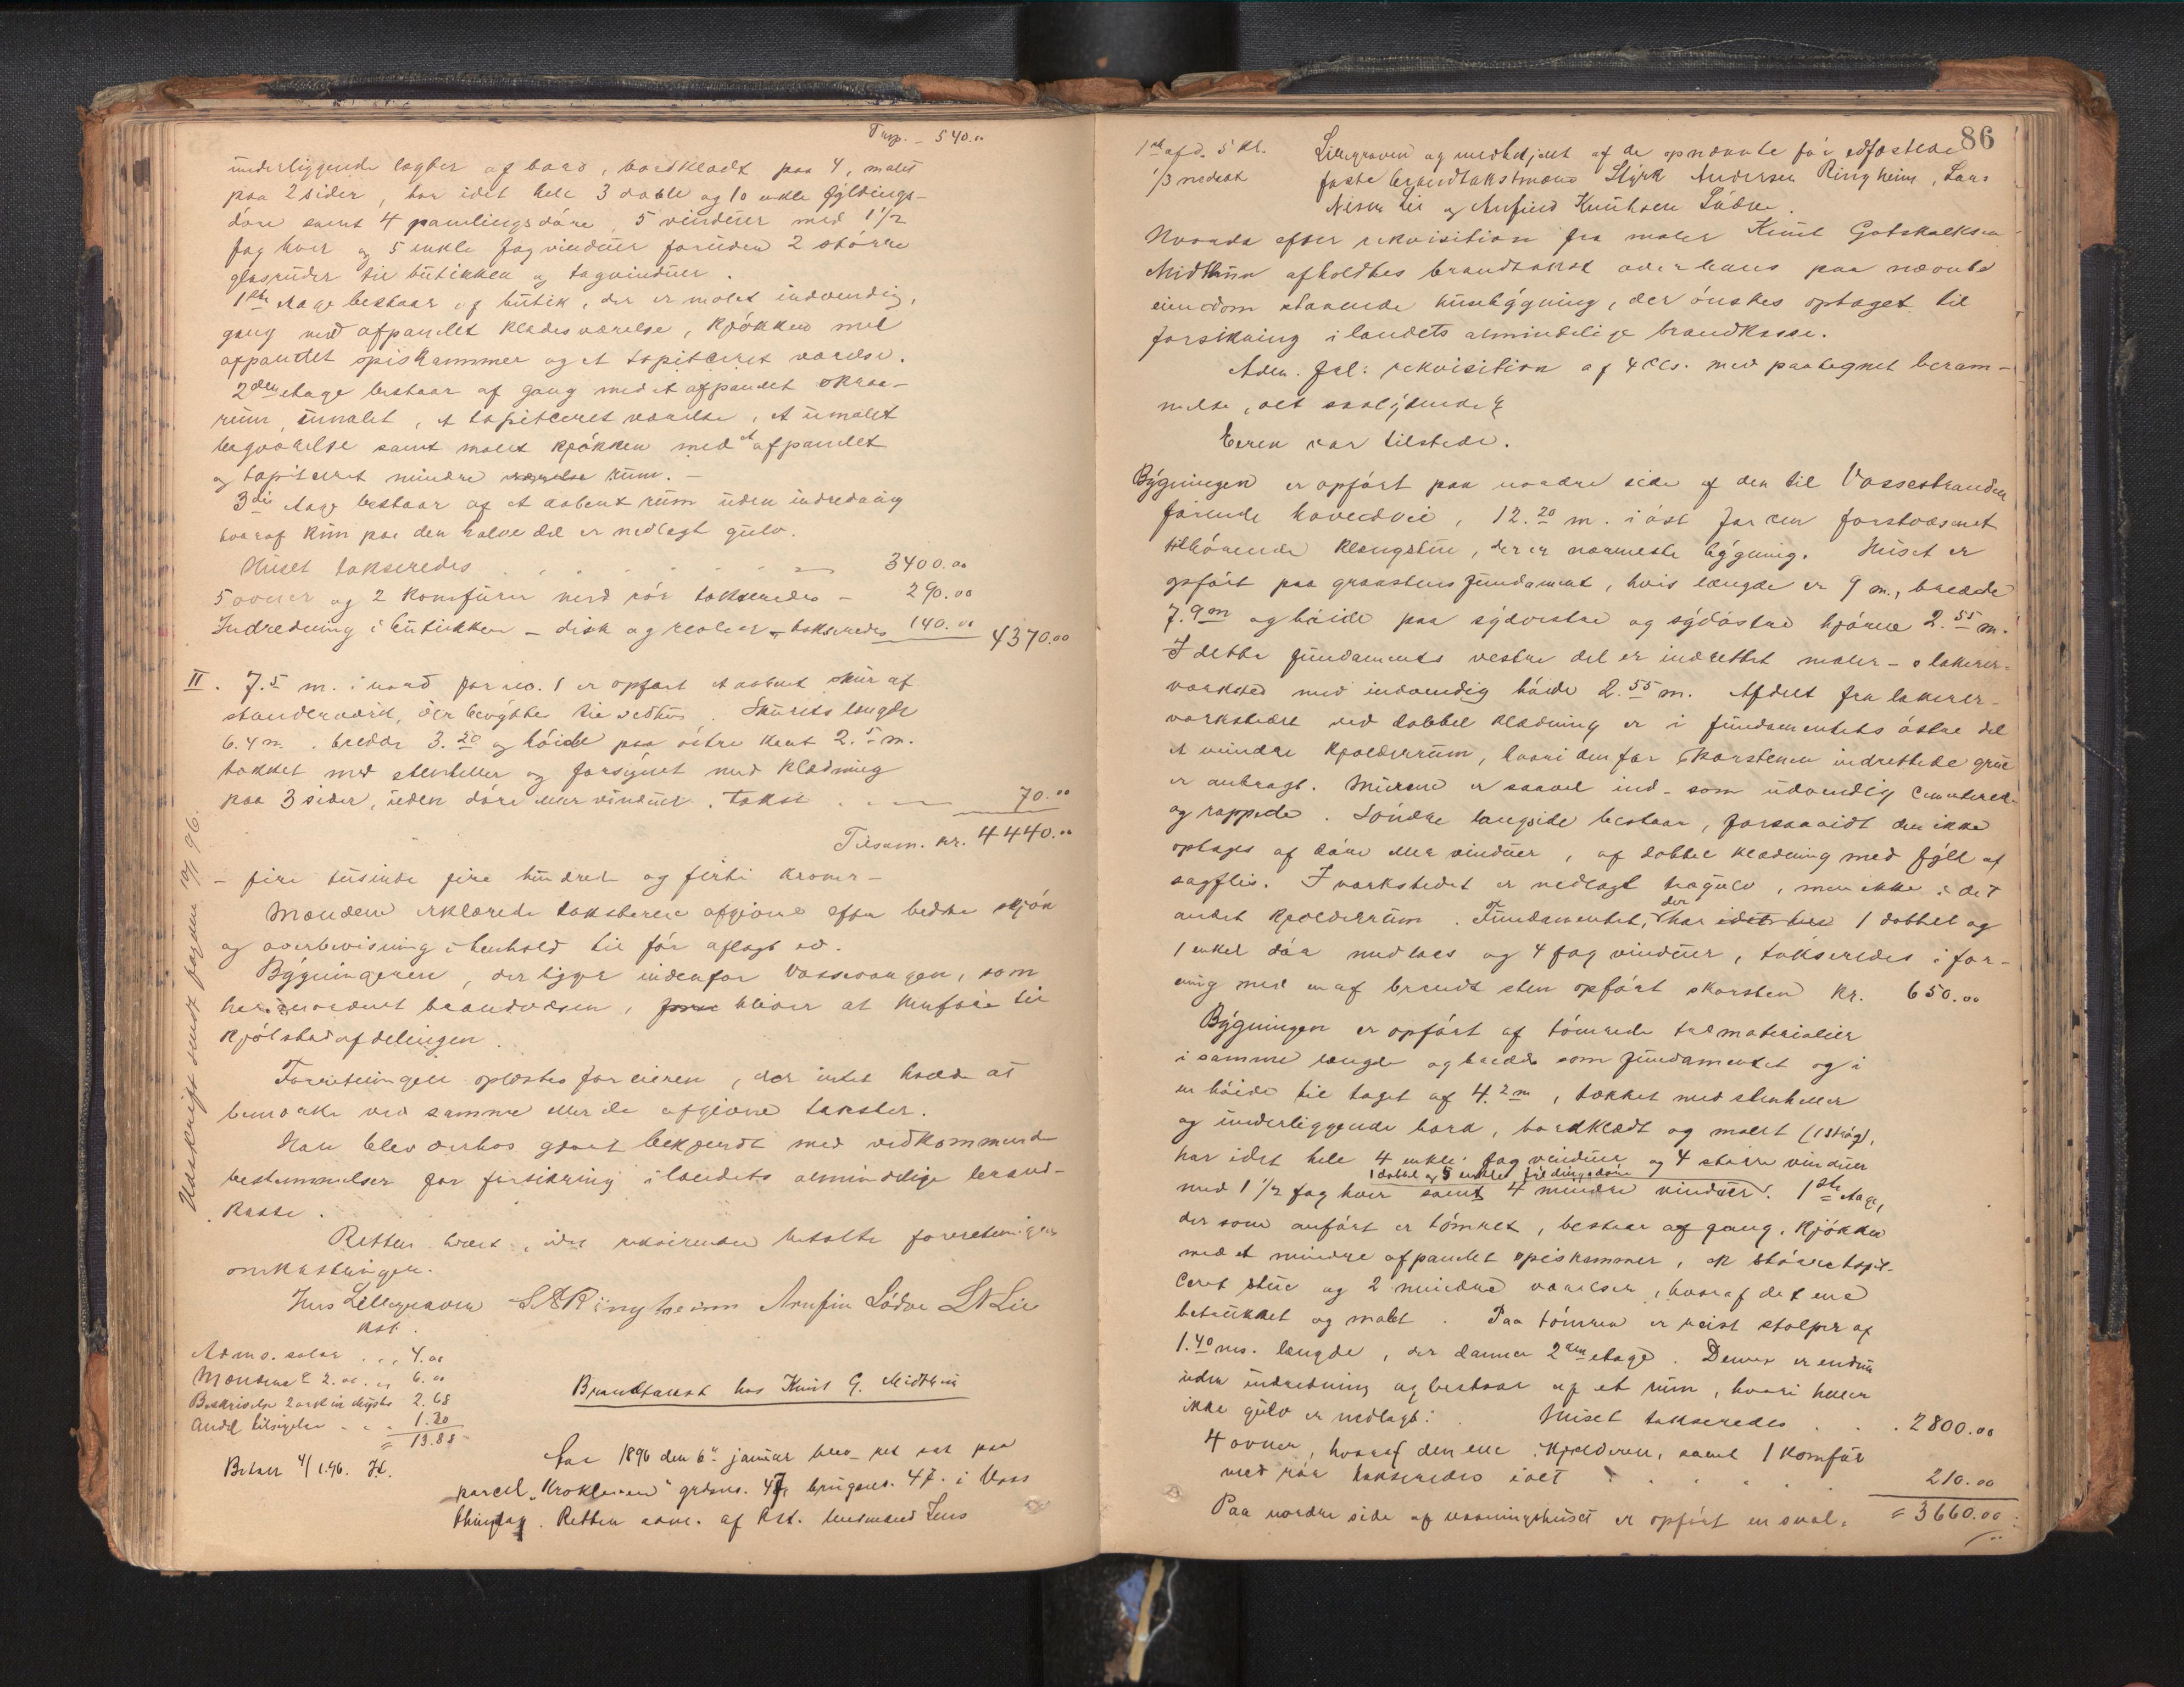 Trsp. – 540.00
underliggende lagter af bord, bordklædt paa 4, malet
paa 2 sider, har idet hele 3 doble og 10 enkle fyldings-
döre samt 4 panelingsdöre, 5 vinduer med 1 1/2
fag hver og 5 enkle fag vinduer foruden 2 större
glasruder til butikken og tagvinduer.
1ste etage bestaar af butik, der er malet indvendig,
gang med afpanelet klædesværelse, kjökken med
afpanelet spiskammer og et tapitceret værelse.
2den etage bestaar af gang med et afpanelet
rum, umalet, et tapitceret værelse, et umalet
værelse samt malet kjökken med et afpanelet
og tapitceret mindre rum.
3die etage bestaar af et aabent rum uden indredning
hvoraf kun paa den halve del er nedlagt gulv.
Huset takseredes 3400.00
5 ovner og 2 komfurer med rör takseredes – 290.00
Indredning i butikken – disk og reoler – takseredes 140.00 4370.00
II. 7.5 m. i nord for no. 1 er opfört et aabent skur af
stenderværk, der benyttes til vedhus. Skurets længde
6.4 m. bredde 3.20 og höide paa östre kant 2.5 m.
tækket med stenheller og forsynet med klædning
paa 3 sider, uden döre eller vinduer. Takst 70.00
Tilsam. kr. 4440.00
– fire tusinde fire hundrede og firti kroner –
Mændene erklærede taksterne afgivne efter bedste skjön
og overbevisning i henhold til för aflagt ed.
Bygningerne, der ligger indenfor Vossevangen, som
har brandvæsen, bliver at henföre til
kjöbstadafdelingen.
Forretningen oplæstes for eieren, der intet havde at
bemærke ved samme eller de afgivne takster.
Han blev derhos gjort bekjendt med vedkommende
bestemmelser for forsikring i landets almindelige brand-
kasse.
Retten hævet, idet rekvirenten betalte forretningens
omkostninger.
Jens Lillegraven SARingheim Arnfin Lödve LNLie
kst.
Admo. salær 4.00
Mændene à 2.00 6.00
Beskrivelse 2 ark in duplo 2.68
Andel tilsigelse 1.20
= 13.88
Betalt 4/1.96. JL.
Udskrift sendt fogden 10/1 96.
Brandtakst hos Knut G. Midthun
Aar 1896 den 6te januar blev ret sat paa
parcel "Krokhaven" grdno. 47 brugsno. 47 i Voss
thinglag. Retten adm. af kst. lensmand Jens
86
1ste afd. 5 kl.
1/3 nedsat
Lillegraven og medbetjent af de opnævnte för edfæstede
faste brandtakstmænd Styrk Andersen Ringheim, Lars
Nilsen Lie og Arnfind Knutsen Lödve.
Hvorda efter rekvisition fra maler Knut Gotskalksen
Midthun afholdtes brandtakst over hans paa nævnte
eiendom staaende husbygning, der önskes optaget til
forsikring i landets almindelige brandkasse.
Adm. frl: rekvisition af 4 ds. med paategnet beram-
melse, alt saalydende
Eieren var tilstede.
Bygningen er opfört paa nordre side af den til Vossestranden
förende hovedvei, 12.20 m. i öst for den forstvæsenet
tilhörende klængstue, der er nærmeste bygning. Huset er
opfört paa graastensfundament, hvis længde er 9 m., bredde
7.9 m og höide paa sydvestre og sydöstre hjörne 2.55 m.
I dette fundaments vestre del er indrettet maler- o lakerer-
værksted med indvendig höide 2.55 m. Afdelt fra lakerer-
værkstedet ved dobbel klædning er i fundamentets östre del
et mindre kjælderrum, hvori den for skorstenen indrettede grue
er anbragt. Murene er saavel ind- som udvendig cementerede
og rappede. Söndre langside bestaar, forsaavidt den ikke
optages af döre eller vinduer, af dobbel klædning med fyll af
sagflis. I værkstedet er nedlagt trægulv, men ikke i det
andet kjælderrum. Fundamentet, der har idethele 1 dobbel og
1 enkel dör med laas og 4 fag vinduer, takseredes i for-
ening med en af brendt sten opfört skorsten kr. 650.00
Bygningen er opfört af tömrede træmaterialier
i samme længde og bredde som fundamentet og i
en höide til taget af 4.2 m, tækket med stenheller
og underliggende bord, bordklædt og malet (1 strög),
har idet hele 4 enkle fag vinduer og 4 större vinduer
1 dobbel og 5 enkle fyldingsdöre
med 1 1/2 fag hver samt 4 mindre vinduer. 1ste etage,
der som anfört er tömret, bestaar af gang, kjökken
med et mindre afpanelet spiskammer, et större tapit-
ceret stue og 2 mindre værelser, hvoraf det ene
betrukket og malet. Paa tömren er reist stolper af
1.40 ms. længde, der danner 2den etage. Denne er endnu
uden indredning og bestaar af et rum, hvori heller
ikke gulv er nedlagt. Huset takseredes 2800.00
4 ovner, hvoraf den ene i kjælderen, samt 1 komfur
med rör takseredes i alt 210.00
= 3660.00
Paa nordre side af vaaningshuset er opfört en sval.